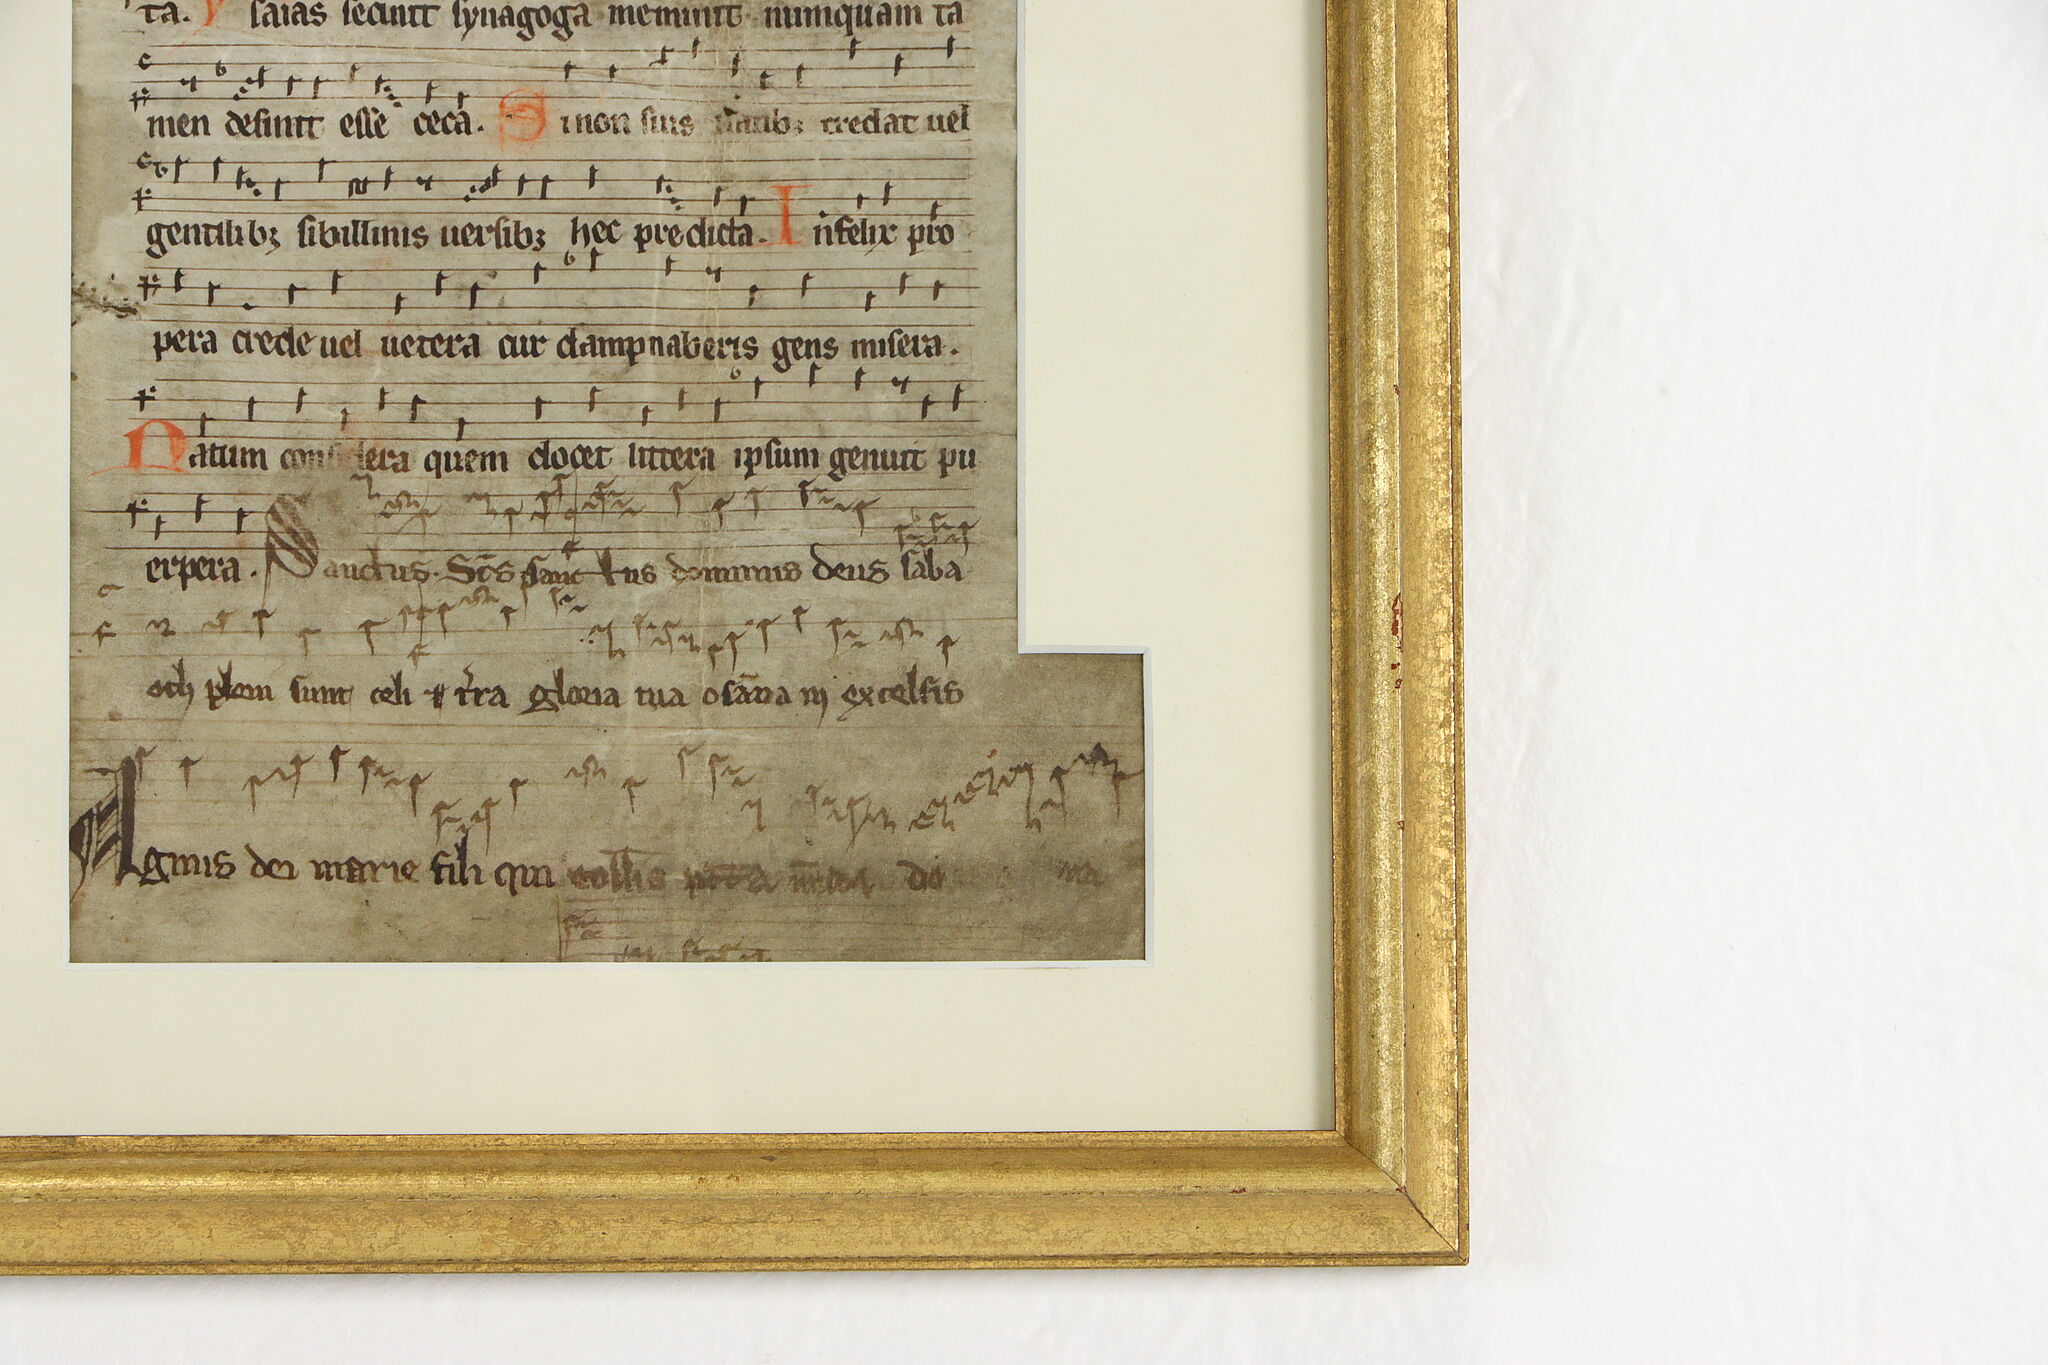 ta. ysaias cecinit synagoga meminit numquam ta
men desinit esse ceca. Si non suis uatib; credat uel
gentilib; sibillinis uersib; hec predicta. Infelix pro
pera crede uel uetera cur dampnaberis gens misera.
Natum considera quem docet littera ipsum genuit pu
erpera. Sanctus. Sc̄s sanctus dominus deus saba
oth pleni sunt celi et t̄ra gloria tua osān̄a in excelsis
Agnus dei marie fili qui tollis